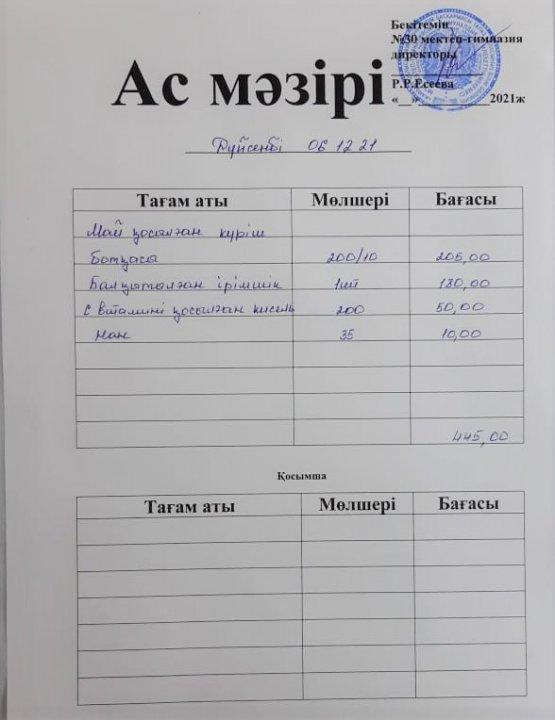 Бекітемін
№30 мектеп-гимназия
директоры
Р.Р.Есеева
«__»__________2021ж
Ас мәзірі
Дүйсенбі 06 12 21
Тағам аты Мөлшері Бағасы
Май қосылған күріш
Ботқасы 200/10 205,00
Балқытылған ірімшік 1шт 180,00
С витамині қосылған кисель 200 50,00
Нан 35 10,00
445,00
Қосымша
Тағам аты Мөлшері Бағасы